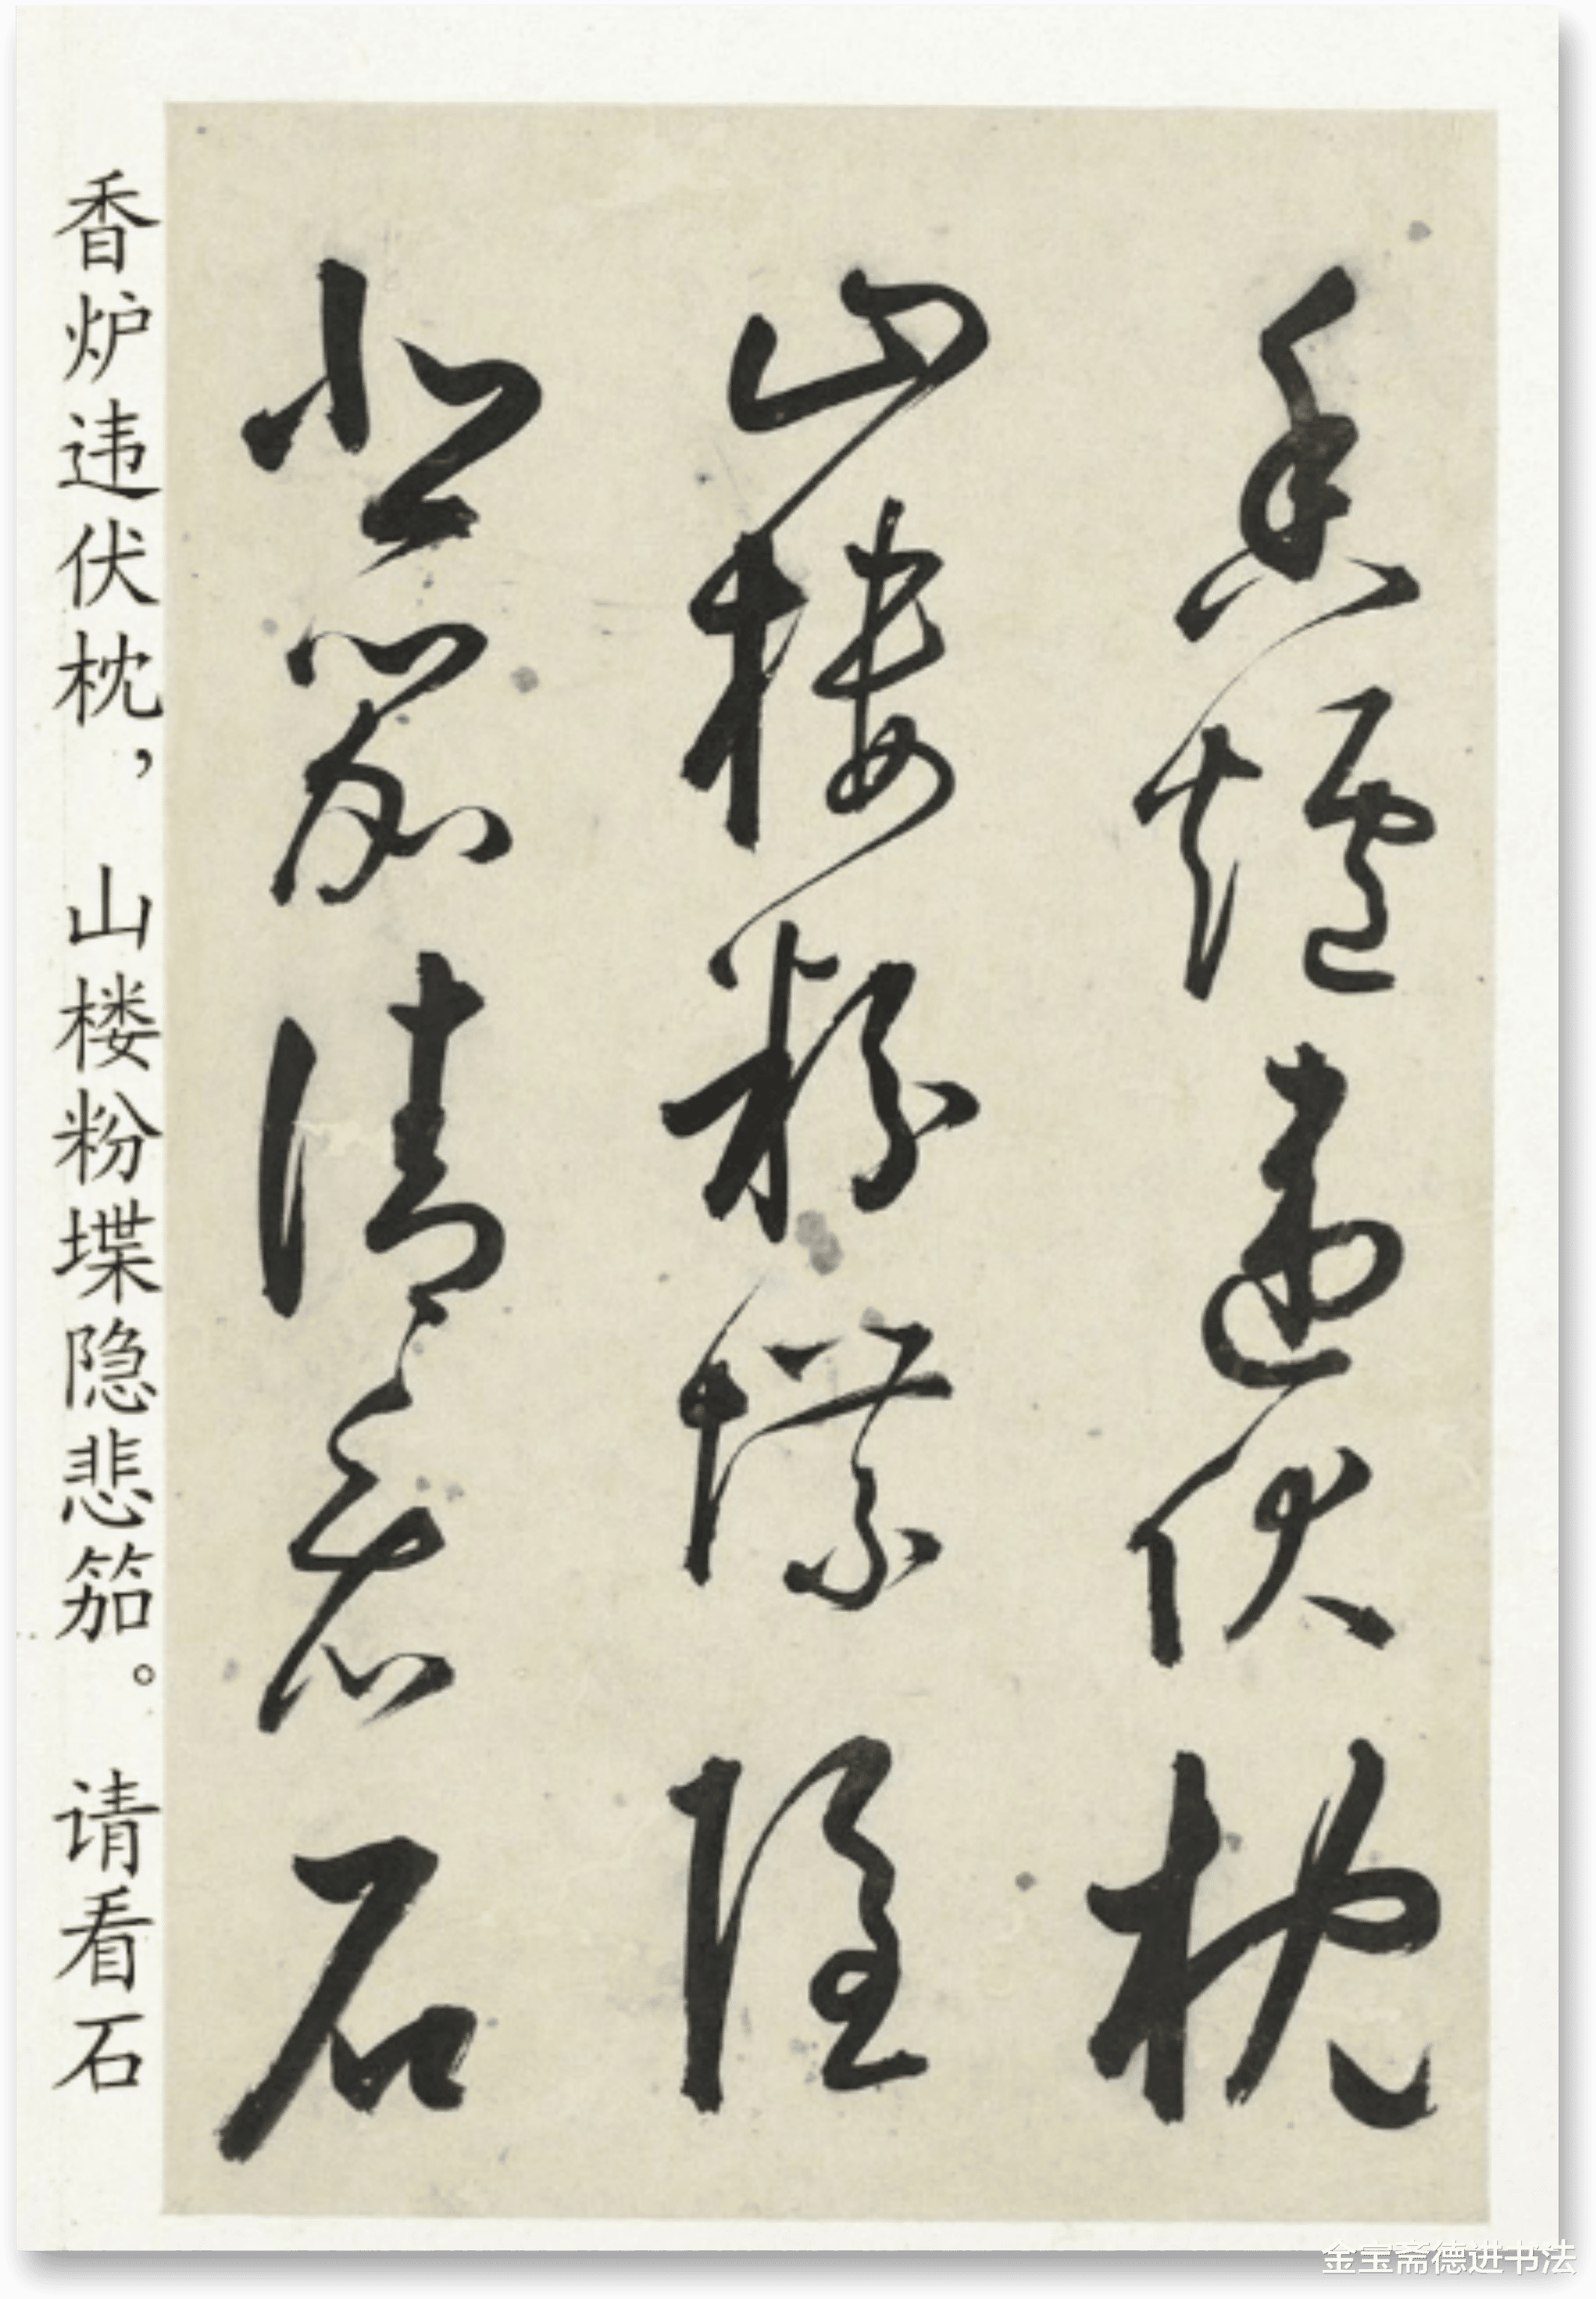 香爐違伏枕
山樓粉堞隱
悲笳請看石
香炉违伏枕，山楼粉堞隐悲笳。请看石
金宝斋德进书法